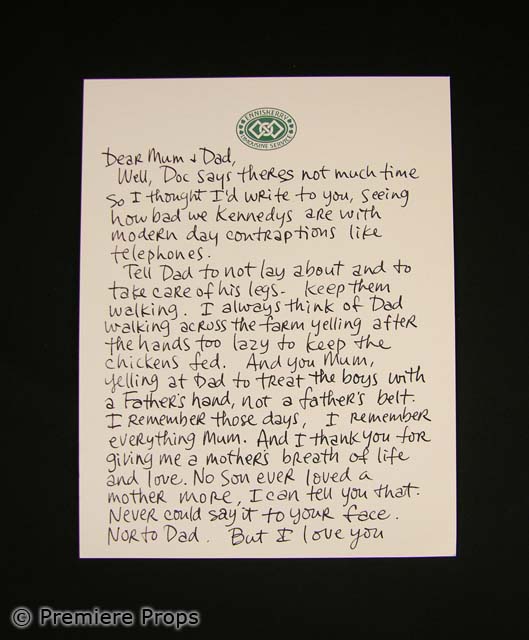 ENNISKERRY
LIMOUSINE SERVICE
Dear Mum & Dad,
Well, Doc says theres not much time
so I thought I'd write to you, seeing
how bad we Kennedys are with
modern day contraptions like
telephones.
Tell Dad to not lay about and to
take care of his legs- keep them
walking. I always think of Dad
walking across the farm yelling after
the hands too lazy to keep the
chickens fed. And you Mum,
yelling at Dad to treat the boys with
a Father's hand, not a father's belt.
I remember those days, I remember
everything Mum. And I thank you for
giving me a mother's breath of life
and love. No Son ever loved a
mother more, I can tell you that.
Never could say it to your face.
Nor to Dad. But I love you
© Premiere Props